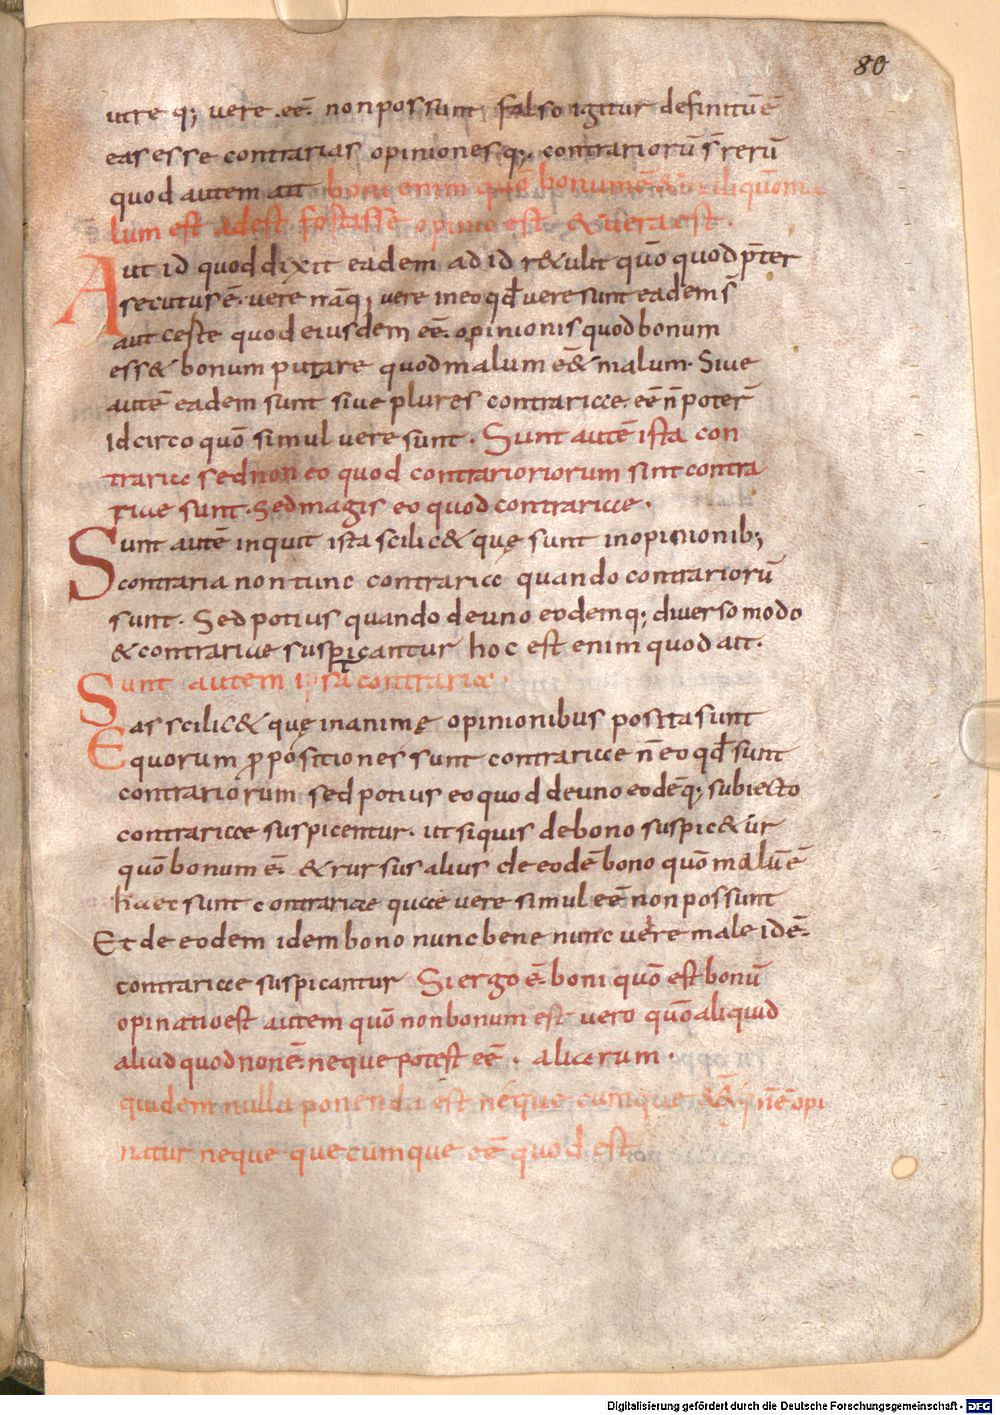 80
utre q; vere .eē. non possunt falso igitur definitū ē
eas esse contrarias opiniones q; contrariorū s̄ rerū
quod autem ait boni enim quē bonum ē
lum est adest fortasse opinio est & vera est.
Aut id quod dixit eadem ad id r&ulit quō quod p̄ter
secutus ē. vere nāq; vere in eo qd̄ vere sunt eadem s̄
aut certe quod eiusdem eē. opinionis quod bonum
ess& bonum putare quod malum ē& malum. Sive
autē eadem sunt sive plures contrariae. eē n̄ poter̄
Idcirco quō simul vere sunt. Sunt autē ista con
trariae sed non eo quod contrarioriorum sint contra
riae sunt. Sed magis eo quod contrariae.
Sunt autē inquit ista scilic& quę sunt in opinionib;
contraria non tunc contrariae quando contrariorū
sunt. Sed potius quando de uno eodemq; diverso modo
& contrariae suspicantur hoc est enim quod ait.
Sunt autem ipsa contrariae.
Eas scilic& quę in animę opinionibus posita sunt
quorum p̄positiones sunt contrariae n̄ eo qd̄ sunt
contrariorum sed potius eo quod de uno eodēq; subiecto
contrariae suspicentur. ut si quis de bono suspic&ur
quō bonum ē. & rursus alius de eodē bono quō malū ē
haec sunt contrariae quae vere simul eē non possunt
Et de eodem idem bono nunc bene nunc vere male idē.
contrariae suspicantur Si ergo ē. boni quō est bonū
opinatio est autem quō non bonum est vero quō aliquid
aliud quod non ē. neque potest eē. aliarum.
quidem nulla ponenda est neque cumque n̄ ē opi
natur neque que cumque eē quod est
Digitalisierung gefördert durch die Deutsche Forschungsgemeinschaft - DFG